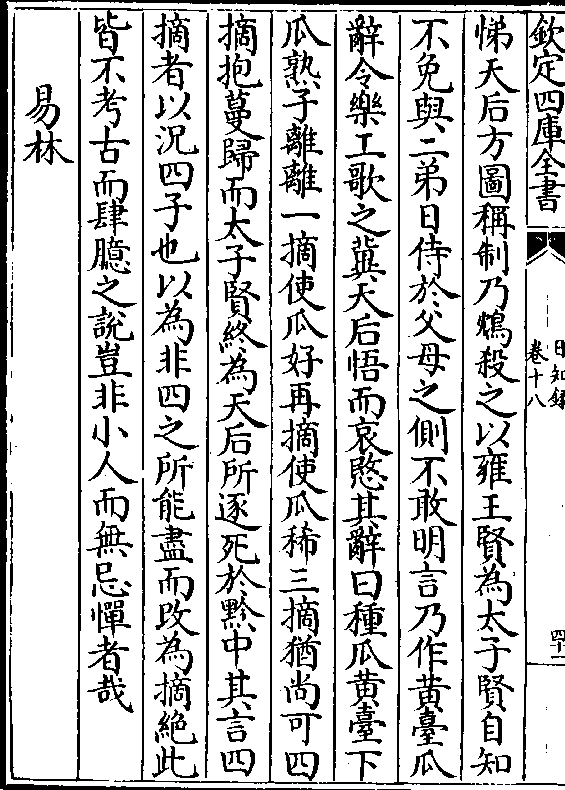 欽定四庫全書
日知錄
卷十八
四十一
悌天后方圖稱制乃鴆殺之以雍王賢為太子賢自知
不免與二弟日侍於父母之側不敢明言乃作黄臺瓜
辭令樂工歌之冀天后悟而哀愍其辭曰種瓜黄臺下
瓜熟子離離一摘使瓜好再摘使瓜稀三摘猶尚可四
摘抱蔓歸而太子賢終為天后所逐死於黔中其言四
摘者以況四子也以為非四之所能盡而改為摘絶此
皆不考古而肆臆之說豈非小人而無忌憚者哉
易林